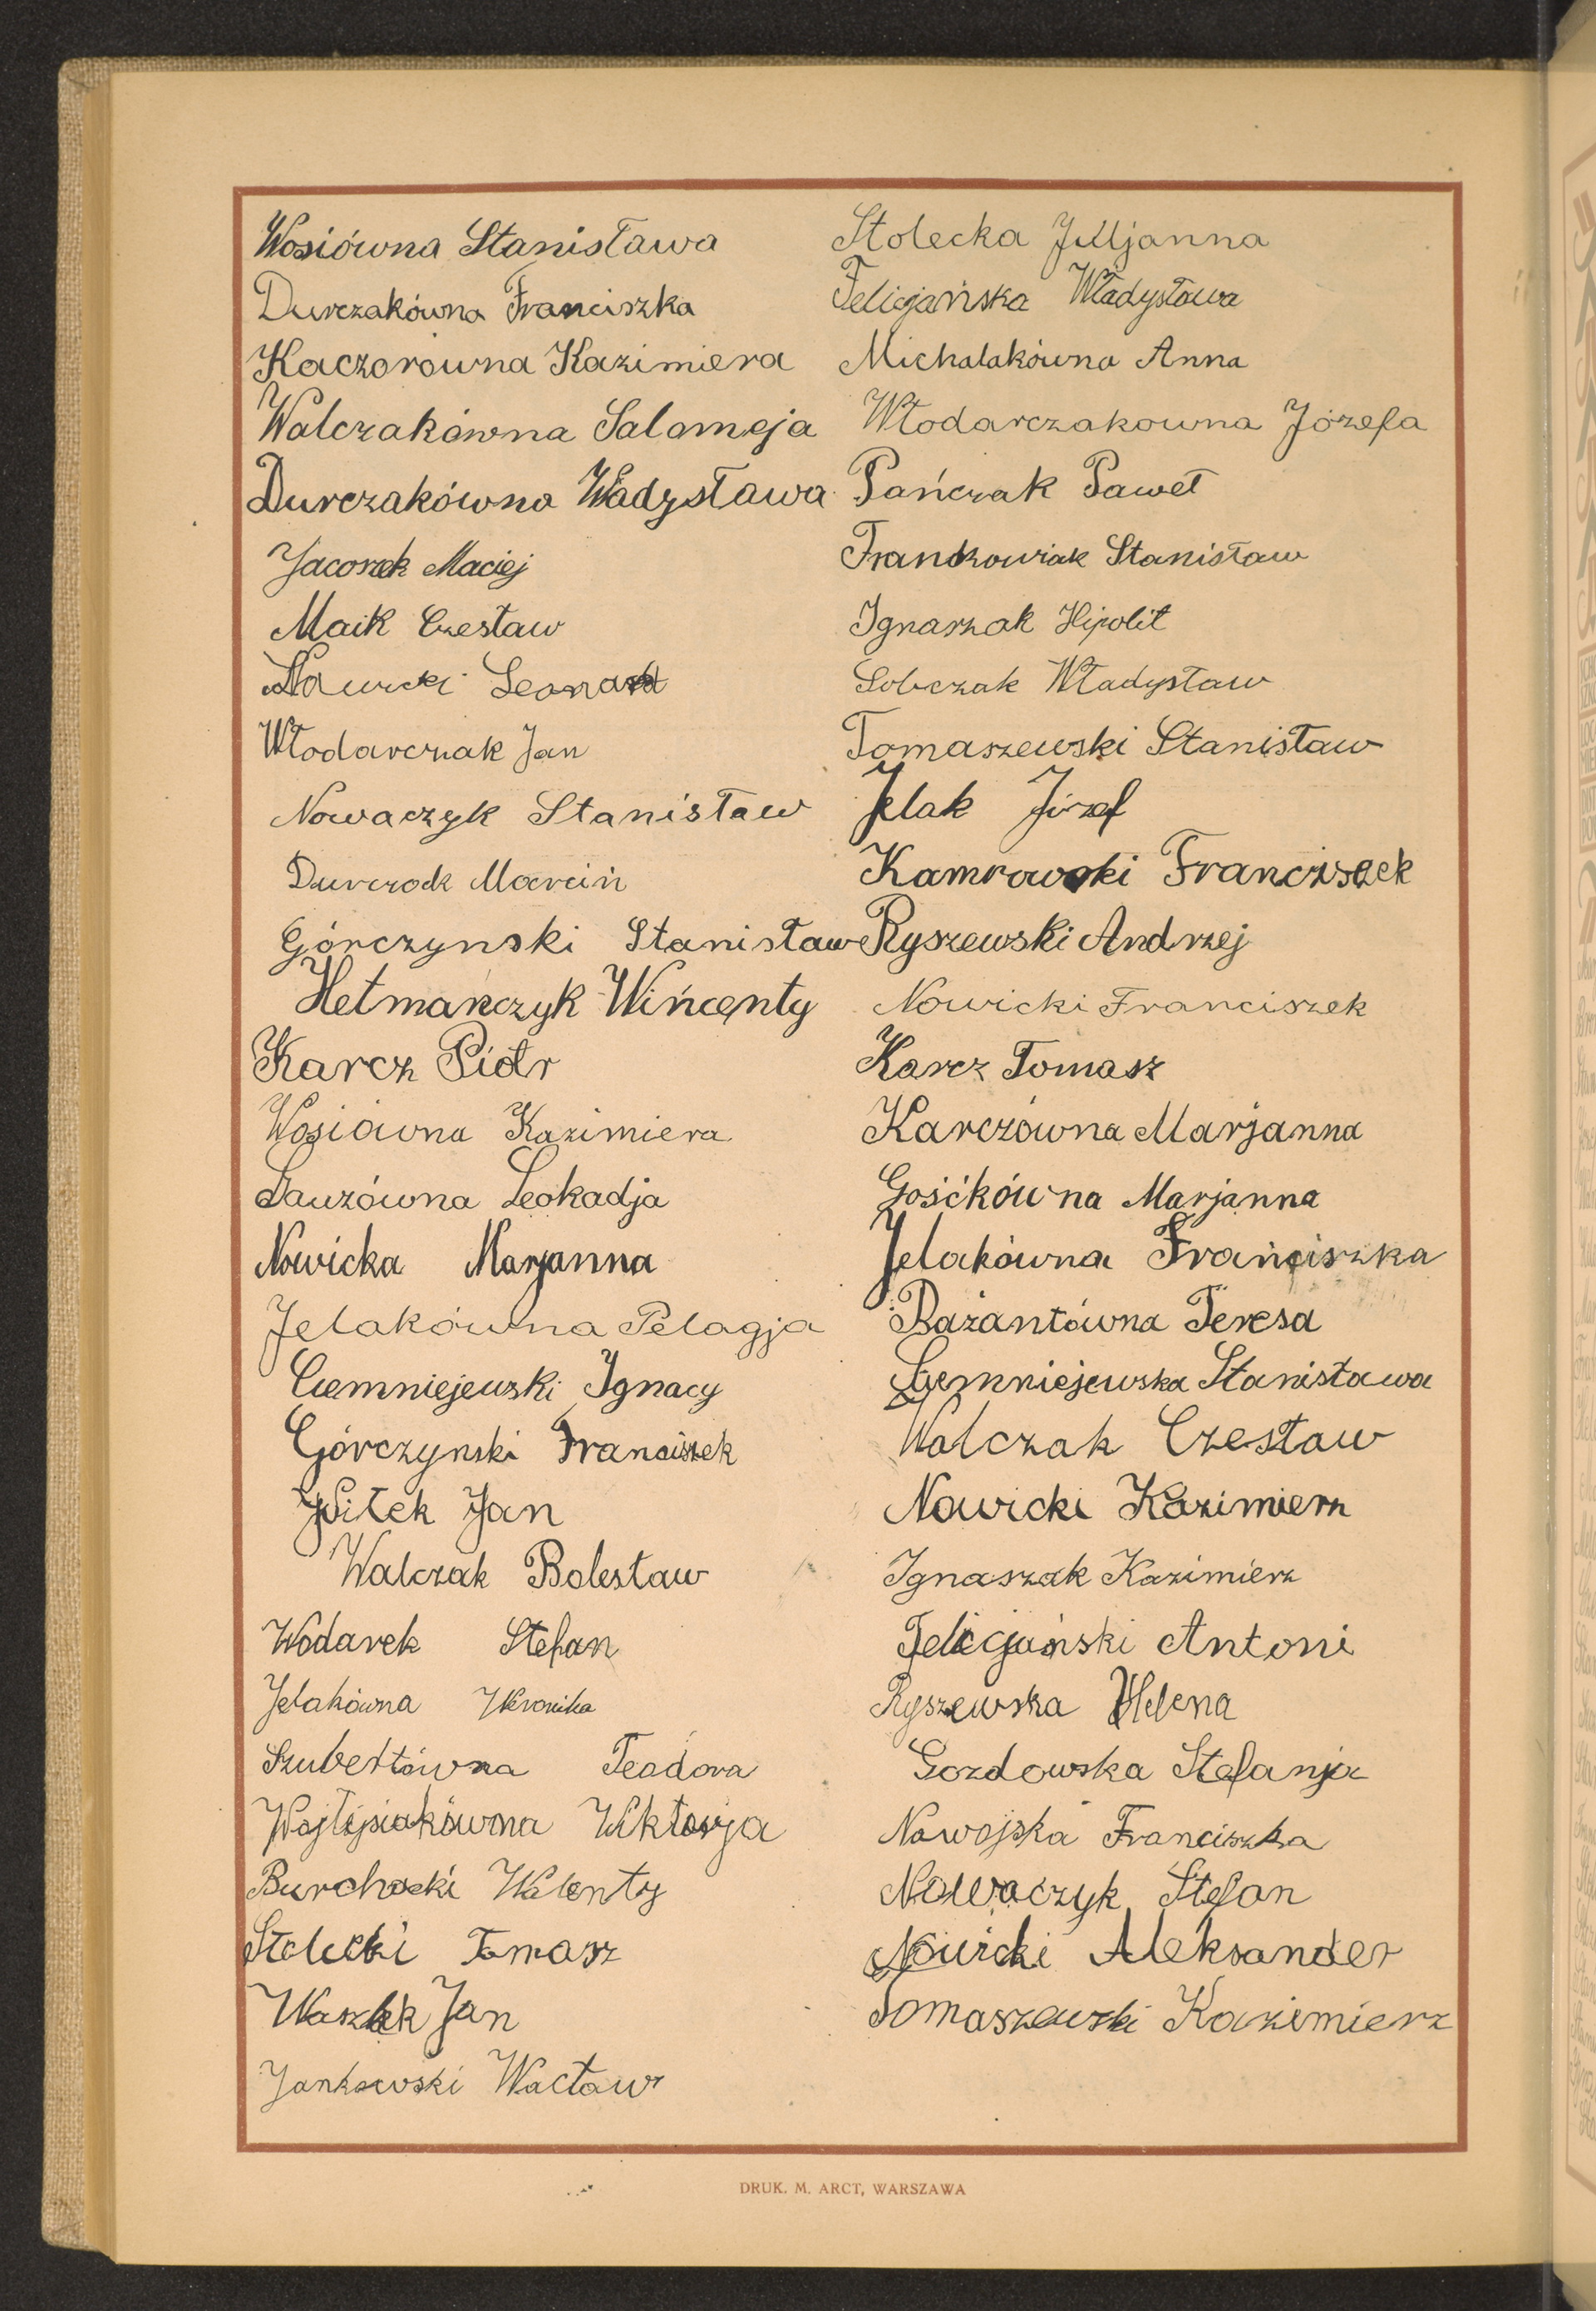 Wosiówna Stanisława
Durczakówna Franciszka
Kaczorówna Kazimiera
Walczakówna Salomeja
Durczakówna Władysława
Jacoszek Maciej
Maik Czesław
Nawicki Leonard
Włodarczak Jan
Nowaczyk Stanisław
Durczak Marcin
Górczynski Stanisław
Hetmańczyk Wińcenty
Karcz Piotr
Wosiówna Kazimiera
Sauzówna Leokadja
Nowicka Marjanna
Jelakówna Pelagja
Ciemniejewski Ignacy
Górczynski Franciszek
Witek Jan
Walczak Bolesław
Wodarek Stefan
Jelakówna Weronika
Szubertówna Teodora
Wojtysiakówna Wiktorja
Burchacki Walenty
Stolecki Tomasz
Waszak Jan
Jankowski Wacław
Stolecka Julljanna
Felicjańska Władysława
Michalakówna Anna
Włodarczakowna Józefa
Pańczak Paweł
Frankowiak Stanisław
Ignaszak Hipolit
Sobczak Władysław
Tomaszewski Stanisław
Jelak Józef
Kamrowski Franciszek
Ryszewski Andrzej
Nowicki Franciszek
Karcz Tomasz
Karczówna Marjanna
Gośćkówna Marjanna
Jelakówna Franciszka
Bażantówna Teresa
Ciemniejewska Stanisława
Walczak Czesław
Nowicki Kazimierz
Ignaszak Kazimierz
Felicjański Antoni
Ryszewska Helena
Gozdowska Stefanja
Nawojska Franciszka
Nowaczyk Stefan
Nowicki Aleksander
Tomaszewski Kazimierz
DRUK. M. ARCT, WARSZAWA